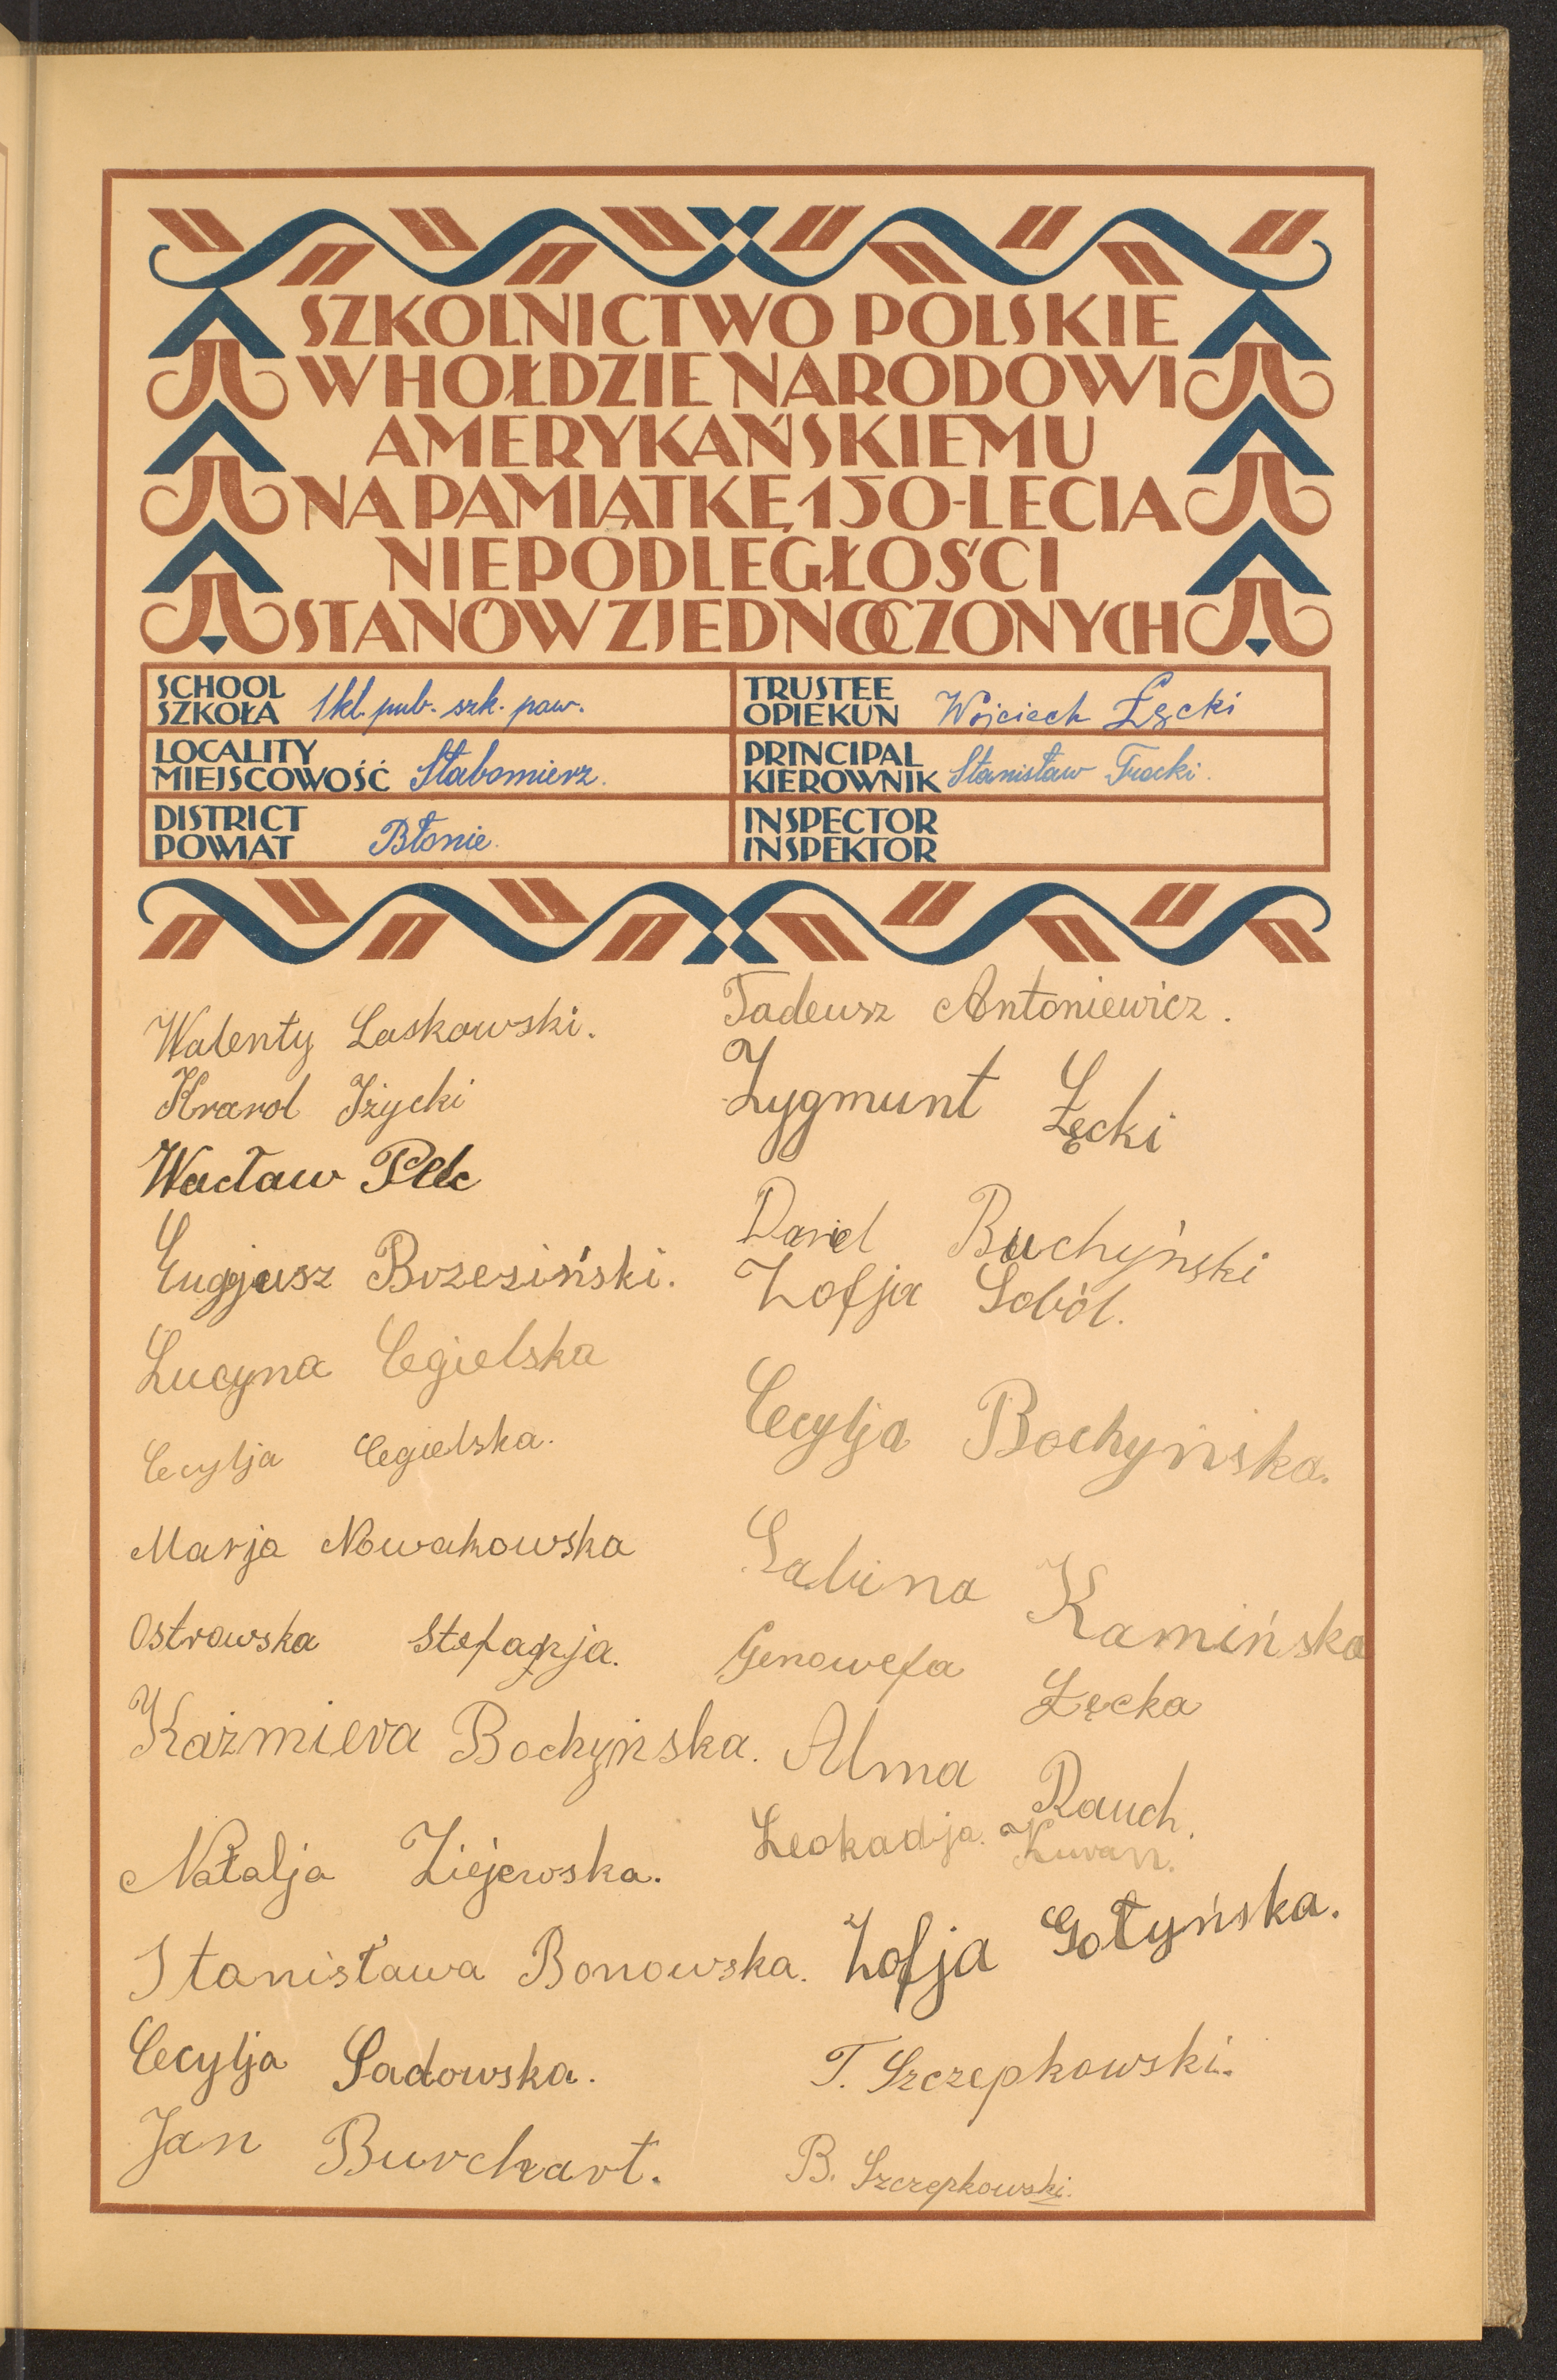 SZKOLNICTWO POLSKIE
W HOŁDZIE NARODOWI
AMERYKAŃSKIEMU
NA PAMIĄTKĘ 150-LECIA
NIEPODLEGŁOŚCI
STANÓW ZJEDNOCZONYCH
SCHOOL
SZKOŁA 1 kl. pub. szk. pow.
TRUSTEE
OPIEKUN Wojciech Łęcki
LOCALITY
MIEJSCOWOŚĆ Słabomierz.
PRINCIPAL
KIEROWNIK Stanisław Trocki.
DISTRICT
POWIAT Błonie.
INSPECTOR
INSPEKTOR
Walenty Laskowski.
Krarol Iżycki
Wacław Pelc
Eugjeusz Brzesiński.
Lucyna Cegielska
Cecylja Cegielska.
Marja Nowakowska
Ostrowska Stefanja.
Kaźmiera Bochyńska.
Natalja Ziejewska.
Stanisława Bonowska.
Cecylja Sadowska.
Jan Burchart.
Tadeusz Antoniewicz.
Zygmunt Łęcki
Daniel Buchyński
Zofja Soból.
Cecylja Bochyńska.
Sabina Kamińska
Genowefa Łęcka
Alma Rauch.
Leokadja Kuran.
Zofja Gołyńska.
T. Szczepkowski.
B. Szczepkowski.